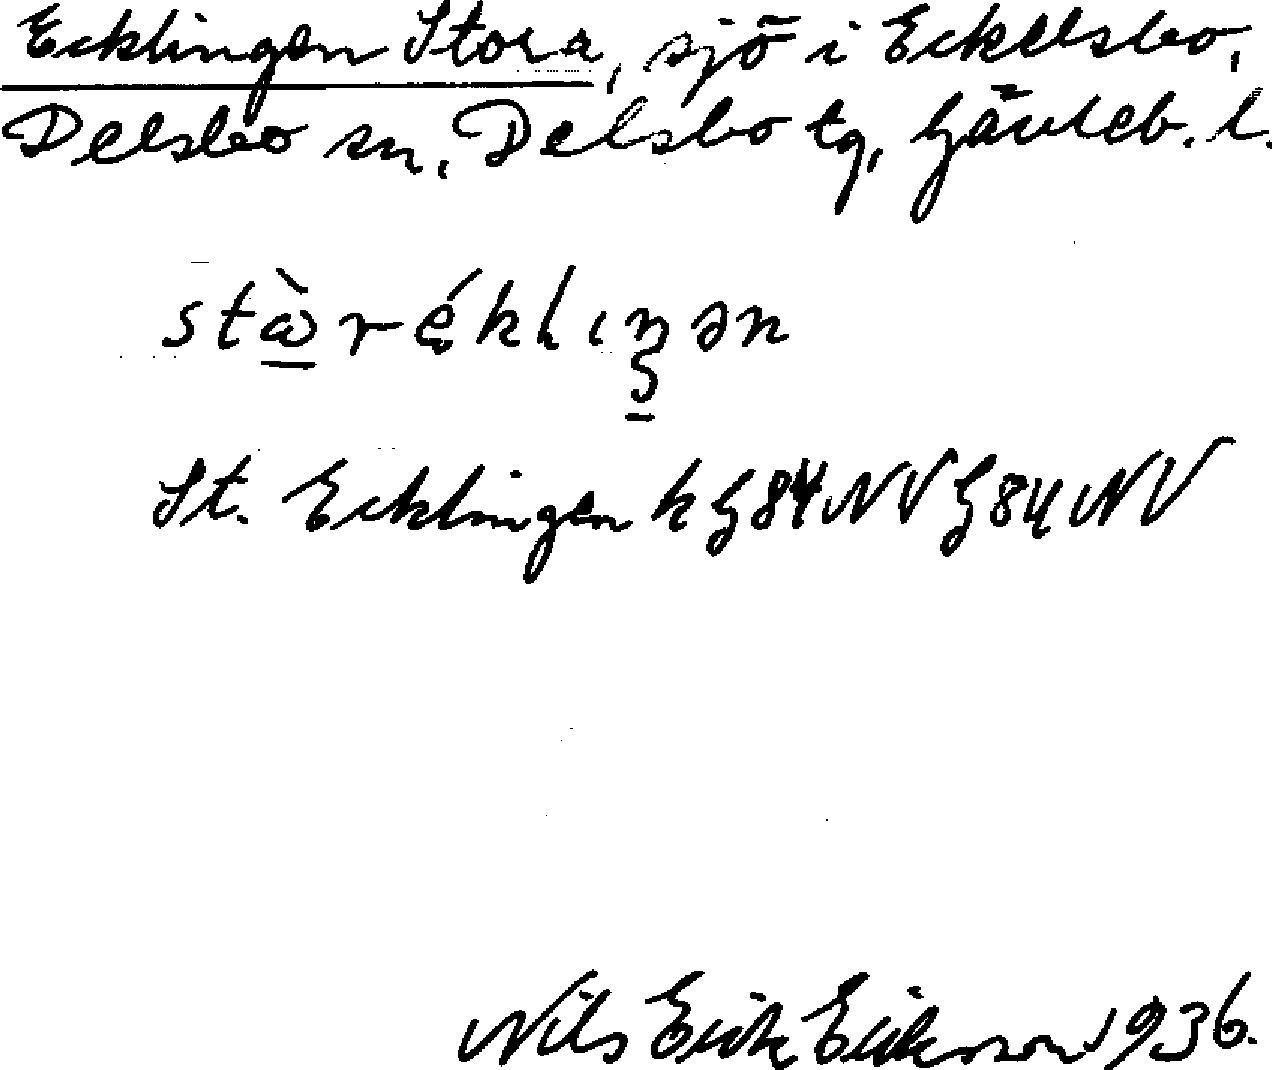 Ecklingen Stora, sjö i Eckelsbo,
Delsbo sn, Delsbo tg, Gävleb. l.
stὼréklıŋən
St. Ecklingen k G84NV G84NV
Nils Erik Eriksson 1936.